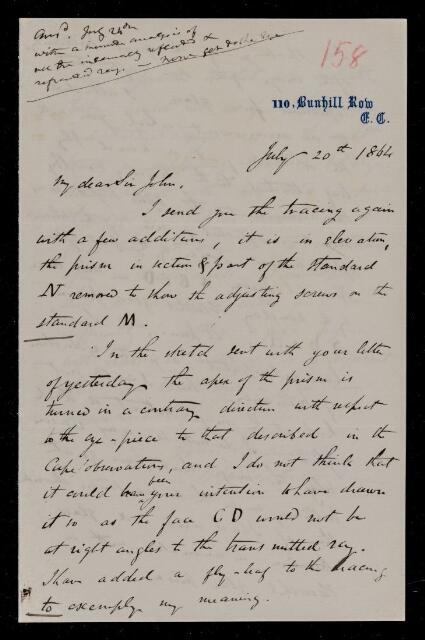 Ansd. July 24th
with a minute analysis of
all the internally reflected &
refracted rays —
158
110, Bunhill Row
E.C.
July 20th 1864
My dear Sir John,
I send you the tracing again
with a few additions, it is in elevation,
the prism in section & part of the standard
N removed to show the adjusting screws on the
standard M.
In the sketch sent with your letter
of yesterday the apex of the prism is
turned in a contrary direction with respect
to the eye-piece to that described in the
Cape observations, and I do not think that
it could been your intention to have drawn
it so as the face C D would not be
at right angles to the transmitted ray.
I have added a fly-leaf to the tracing
to exemplify my meaning.